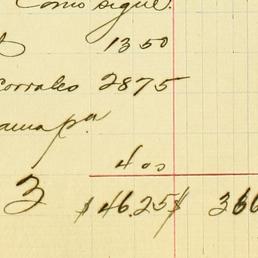 Como sigue.
13 50
corrales 2875
4 00
3 $46.25 $ 366